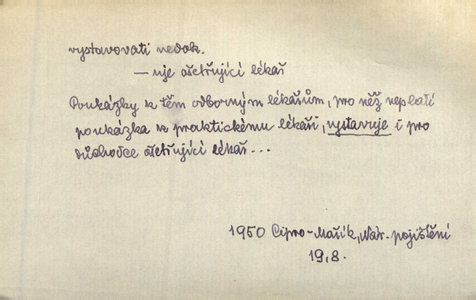 vystavovati nedok.
— uje ošetřující lékař
Poukázky k těm odborným lékařům, pro něž neplatí
poukázka k praktickému lékaři, vystavuje i pro
důchodce ošetřující lékař...
1950 Cipro-Mašík, Nár. pojištění
19,8.